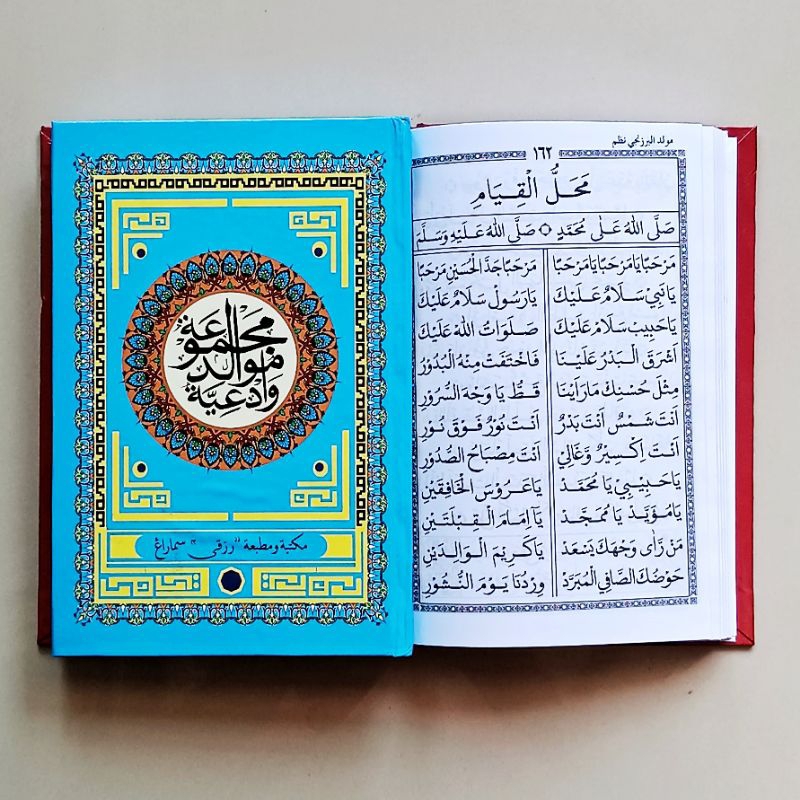 مجموعة
موالد
وادعية
مكتبة ومطبعة "رزقي" سماراغ
مولد البرزنجي نظم
١٦٢
مَحَلُّ الْقِيَامِ
صَلَّى اللهُ عَلٰى مُحَمَّدٍ ۞ صَلَّى اللهُ عَلَيْهِ وَسَلَّمَ
مَرْحَبًا يَا مَرْحَبًا يَا مَرْحَبًا مَرْحَبًا جَدَّ الْحُسَيْنِ مَرْحَبًا
يَا نَبِيْ سَلَامٌ عَلَيْكَ يَا رَسُوْلْ سَلَامٌ عَلَيْكَ
يَا حَبِيْبْ سَلَامٌ عَلَيْكَ صَلَوَاتُ اللهْ عَلَيْكَ
أَشْرَقَ الْبَدْرُ عَلَيْنَا فَاخْتَفَتْ مِنْهُ الْبُدُوْرُ
مِثْلَ حُسْنِكْ مَا رَأَيْنَا قَطُّ يَا وَجْهَ السُّرُوْرِ
أَنْتَ شَمْسٌ أَنْتَ بَدْرٌ أَنْتَ نُوْرٌ فَوْقَ نُوْرٍ
أَنْتَ اِكْسِيْرٌ وَغَالِيْ أَنْتَ مِصْبَاحُ الصُّدُوْرِ
يَا حَبِيْبِيْ يَا مُحَمَّدْ يَا عَرُوْسَ الْخَافِقَيْنِ
يَا مُؤَيَّدْ يَا مُمَجَّدْ يَا إِمَامَ الْقِبْلَتَيْنِ
مَنْ رَأَى وَجْهَكَ يَسْعَدْ يَا كَرِيْمَ الْوَالِدَيْنِ
حَوْضُكَ الصَّافِي الْمُبَرَّدْ وِرْدُنَا يَوْمَ النُّشُوْرِ